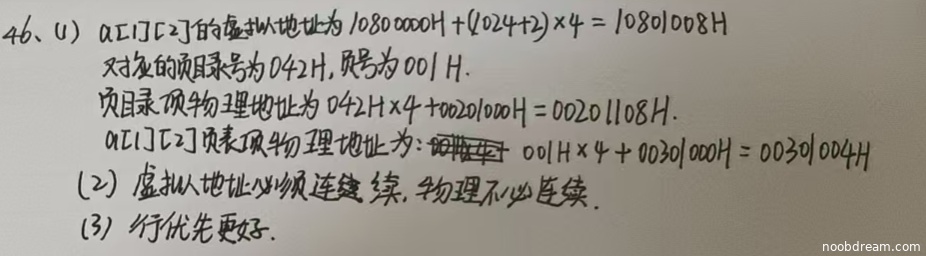 46、(1) a[1][2]的虚拟地址为10800000H+(1024+2)×4=10801008H
对应的页目录号为042H,页号为001H.
页目录项物理地址为042H×4+00201000H=00201108H.
a[1][2]页表项物理地址为: 001H×4+00301000H=00301004H
(2) 虚拟地址必须连续,物理不必连续.
(3) 行优先更好.
noobdream.com